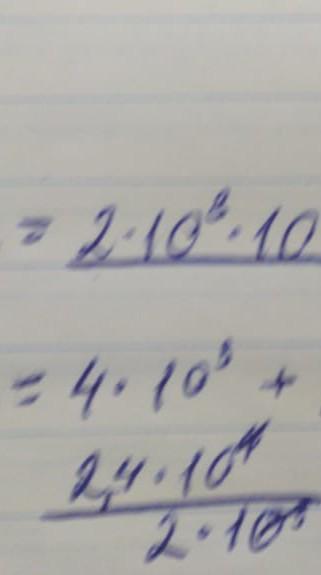 = 2·10⁸·10
= 4·10³ +
2,4·10⁴
2·10³